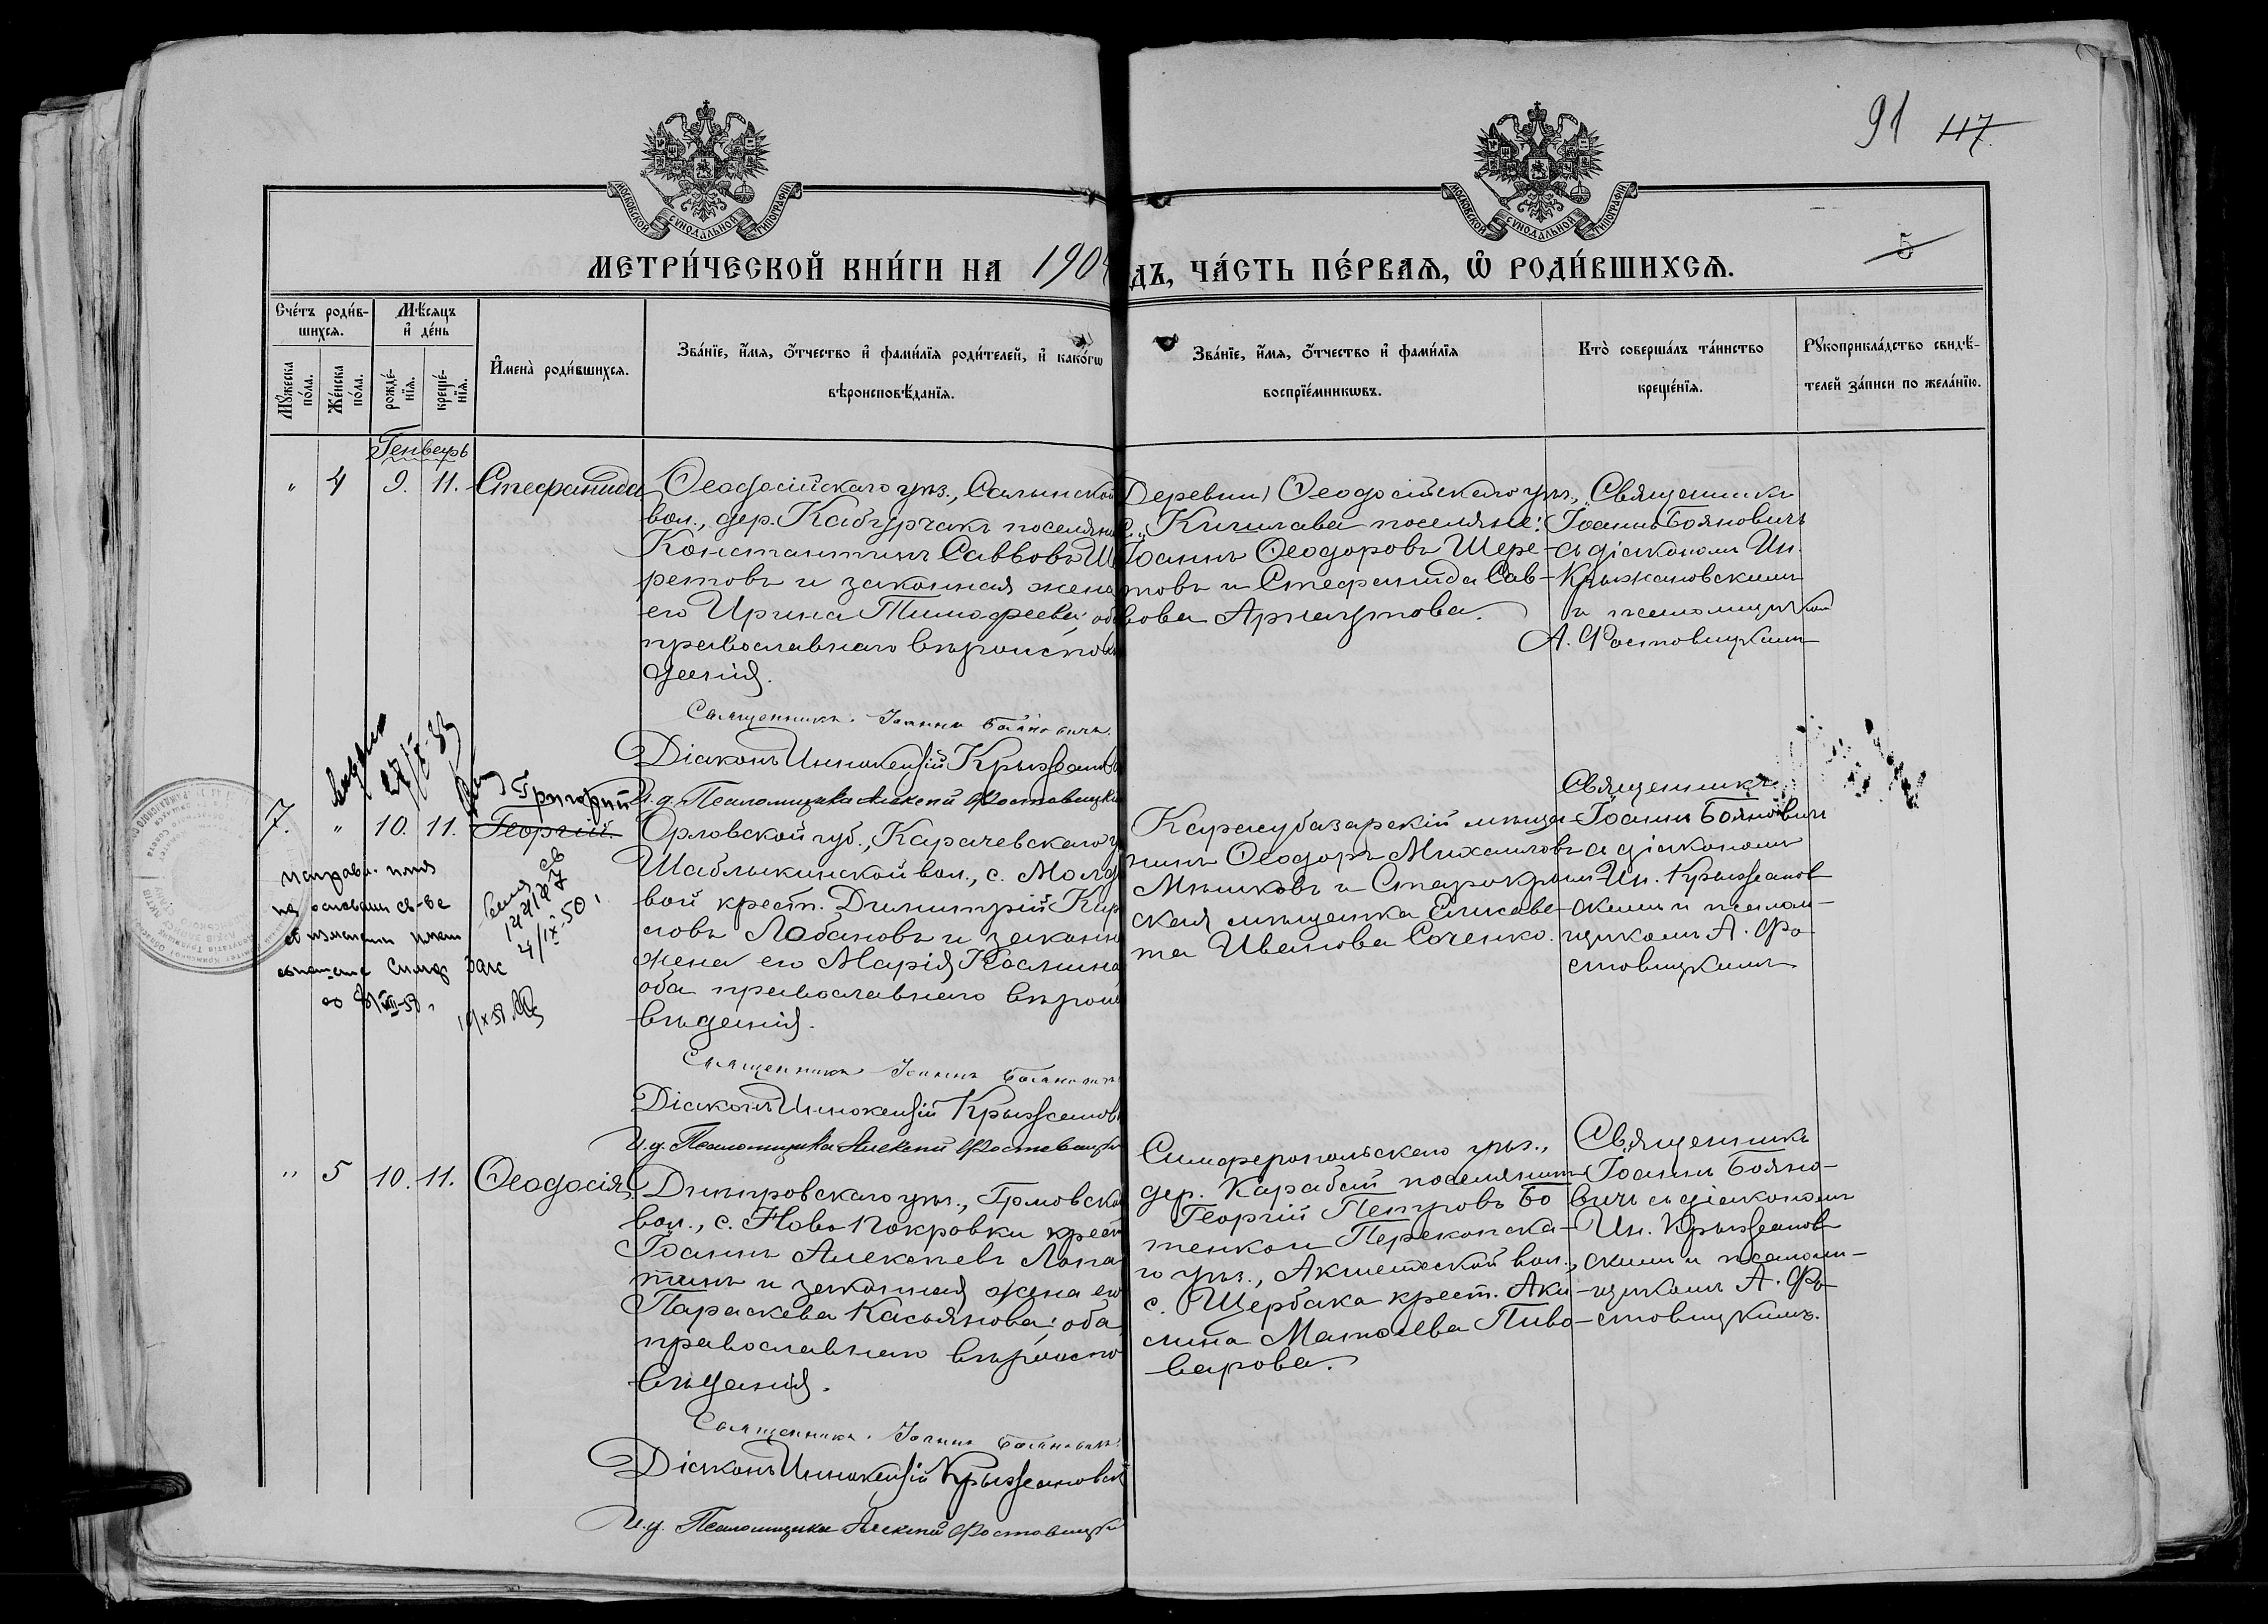 91 117.
МОСКОВСКОЙ СѴНОДАЛЬНОЙ ТИПОГРАФІИ
МОСКОВСКОЙ СѴНОДАЛЬНОЙ ТИПОГРАФІИ
5
МЕТРИ́ЧЕСКОЙ КНИ́ГИ НА 190
ДЪ, ЧА́СТЬ ПЕ́РВАѦ, Ѿ РОДИ́ВШИХСѦ.
Сче́тъ роди́в-
шихсѧ.
Мꙋ́жеска по́ла.
Же́нска по́ла.
Мѣ́сѧцъ
и҆ де́нь
рожде́-
нїѧ.
креще́-
нїѧ.
И҆мена̀ роди́вшихсѧ.
Зва́нїе, и҆́мѧ, ѻ҆́тчество и҆ фами́лїѧ роди́телей, и҆ како́гѡ
вѣроисповѣ́данїѧ.
Зва́нїе, и҆́мѧ, ѻ҆́тчество и҆ фами́лїѧ
воспрїе́мникѡвъ.
Кто̀ соверша́лъ та́инство
креще́нїѧ.
Рꙋкоприкла́дство свидѣ́-
телей за́писи по жела́нїю.
Генварь
" 4 9. 11. Стефанида
Ѳеодосійскаго уѣз., Салынской
вол., дер. Кабурчакъ поселяни
Константинъ Саввовъ Ш
ретовъ и законная жена
его Ирина Тимофеева; об
православнаго вѣроиспов
данія.
Священникъ Іоаннъ Бояновичъ.
Діаконъ Иннокентій Крыжанов
И. д. Псаломщика Алексѣй Фостовицкі
Деревни Ѳеодосійскаго уѣз.,
Кишлава поселяне:
Іоаннъ Ѳеодоровъ Шере-
товъ и Стефанида Сав-
вова Арнаутова.
Священникъ
Іоаннъ Бояновичъ
съ діакономъ Ин.
Крыжановскимъ
и псаломщикомъ
А. Фостовицкимъ
7. " 10. 11. Георгій
Григорий
Орловской губ., Карачевскаго у
Шаблыкинской вол., с. Молод
вой крест. Димитрій Кир
ловъ Лобановъ и законна
жена его Марія Косьмина
оба православнаго вѣроис
вѣданія.
Священникъ Іоаннъ Бояновичъ
Діаконъ Иннокентій Крыжанов
И. д. Псаломщика Алексѣй Фостовицкі
Карасубазарскій мѣща-
нинъ Ѳеодоръ Михаиловъ
Мѣшковъ и Старокрым
ская мѣщанка Елисаве-
та Иванова Соченко.
Священникъ
Іоаннъ Бояновичъ
съ діакономъ
Ин. Крыжанов
скимъ и псалом-
щикомъ А. Фо-
стовицкимъ
исправл. имя
на основании св-ва
об изменении имени
Симф Загс
" 5 10. 11. Ѳеодосія
Днѣпровскаго уѣз., Громовско
вол., с. Ново Покровки крест
Іоаннъ Алексѣевъ Лопа
тинъ и законная жена его
Параскева Касьянова; оба
православнаго вѣроиспо
вѣданія.
Священникъ Іоаннъ Бояновичъ
Діаконъ Иннокентій Крыжановск
И. д. Псаломщика Алексѣй Фостовицкі
Симферопольскаго уѣз.,
дер. Карабай поселянинъ
Георгій Петровъ Бо
тенкои Перекопска-
го уѣз., Акшетской вол.,
с. Щербака крест. Аки-
лина Матѳеева Пиво-
варова.
Священникъ
Іоаннъ Бояно-
вичъ съ діакономъ
Ин. Крыжанов
скимъ и псалом-
щикомъ А. Фо-
стовицкимъ.